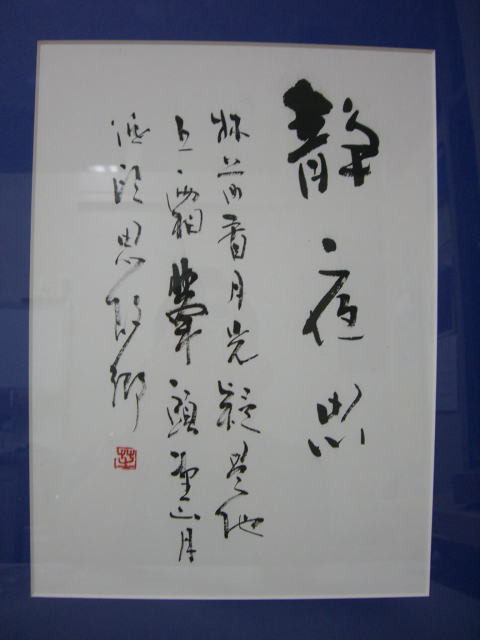 静夜思
牀前看月光疑是地
上霜擧頭望山月
低頭思故郷